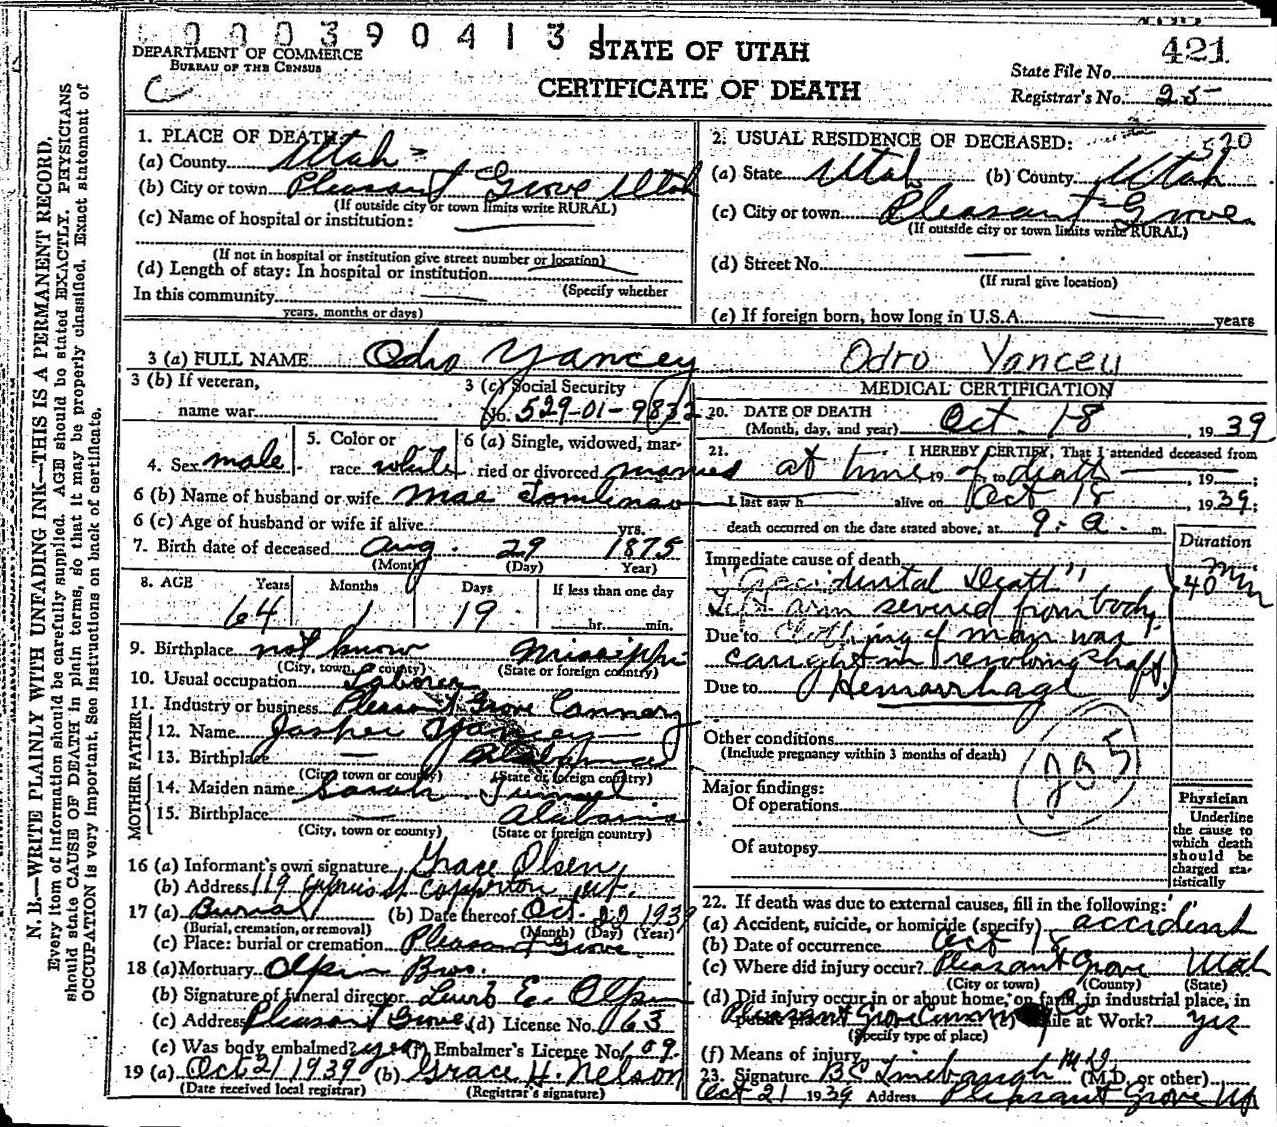 0 0 0 3 9 0 4 1 3 1
DEPARTMENT OF COMMERCE
BUREAU OF THE CENSUS
C
STATE OF UTAH
CERTIFICATE OF DEATH
421
State File No.
Registrar's No. 25
N. B.—WRITE PLAINLY WITH UNFADING INK—THIS IS A PERMANENT RECORD.
Every item of information should be carefully supplied. AGE should be stated EXACTLY. PHYSICIANS
should state CAUSE OF DEATH in plain terms, so that it may be properly classified. Exact statement of
OCCUPATION is very important. See instructions on back of certificate.
1. PLACE OF DEATH
(a) County Utah
(b) City or town Pleasant Grove Utah
(If outside city or town limits write RURAL)
(c) Name of hospital or institution:
(If not in hospital or institution give street number or location)
(d) Length of stay: In hospital or institution
(Specify whether
In this community
years, months or days)
2. USUAL RESIDENCE OF DECEASED:
(a) State Utah (b) County Utah
(c) City or town Pleasant Grove
(If outside city or town limits write RURAL)
(d) Street No.
(If rural give location)
(e) If foreign born, how long in U.S.A. years
3 (a) FULL NAME Odro Yancey Odro Yancey
3 (b) If veteran,
name war
3 (c) Social Security
No. 529-01-9832
4. Sex male
5. Color or
race white
6 (a) Single, widowed, mar-
ried or divorced married
6 (b) Name of husband or wife Mae Tomlinson
6 (c) Age of husband or wife if alive yrs.
7. Birth date of deceased Aug. 29 1875
(Month) (Day) Year)
8. AGE Years Months Days If less than one day
64 1 19 hr. min.
9. Birthplace not know Mississippi
(City, town county) (State or foreign country)
10. Usual occupation Laborer
11. Industry or business Pleasant Grove Cannery
FATHER
12. Name Jasper Yancey
13. Birthplace Alabama
(City, town or county) (State or foreign country)
MOTHER
14. Maiden name Sarah
15. Birthplace Alabama
(City, town or county) (State or foreign country)
16 (a) Informant's own signature Grace Olsen
(b) Address 119 St Copperton Ut.
17 (a) Burial (b) Date thereof Oct. 22 1939
(Burial, cremation, or removal) (Month) (Day) (Year)
(c) Place: burial or cremation Pleasant Grove
18 (a) Mortuary Olpin Bros.
(b) Signature of funeral director E. Olpin
(c) Address Pleasant Grove (d) License No. 163
(e) Was body embalmed? yes (f) Embalmer's License No. 109
19 (a) Oct 21 1939 (b) Grace H. Nelson
(Date received local registrar) (Registrar's signature)
MEDICAL CERTIFICATION
20. DATE OF DEATH
(Month, day, and year) Oct. 18, 1939
21. I HEREBY CERTIFY, That I attended deceased from
at time of death, 19 to, 19;
I last saw h alive on Oct 18, 1939;
death occurred on the date stated above, at 9. a. m.
Duration
Immediate cause of death
"Accidental Death" 40 min
arm severed from body.
Due to Clothing of man was
caught in revolving shaft.
Due to Hemorrhage
Other conditions
(Include pregnancy within 3 months of death)
205
Major findings:
Of operations
Of autopsy
Physician
Underline
the cause to
which death
should be
charged sta-
tistically
22. If death was due to external causes, fill in the following:
(a) Accident, suicide, or homicide (specify) accident
(b) Date of occurrence Oct 18
(c) Where did injury occur? Pleasant Grove Utah
(City or town) (County) (State)
(d) Did injury occur in or about home, on farm, in industrial place, in
public place? Pleasant Grove (e) While at Work? yes
(Specify type of place)
(f) Means of injury
23. Signature B C Linebaugh M D (M.D. or other)
Oct 21 1939 Address Pleasant Grove Ut